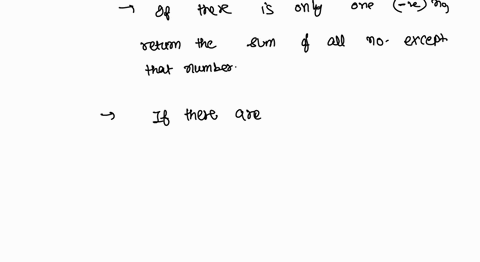 → If there is only one (-ve) no,
return the sum of all no. except
that number.
→ If there are